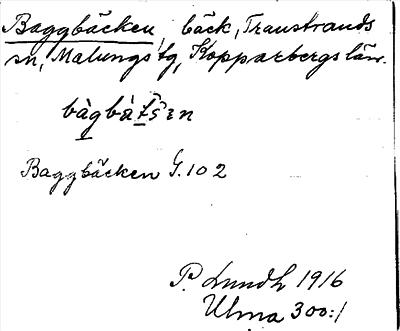 Baggbäcken, bäck, Transtrands
sn, Malungs tg, Kopparbergs län.
bàgbàt̂sın
Baggbäcken G. 102
P. Lundh 1916
Ulma 300:1